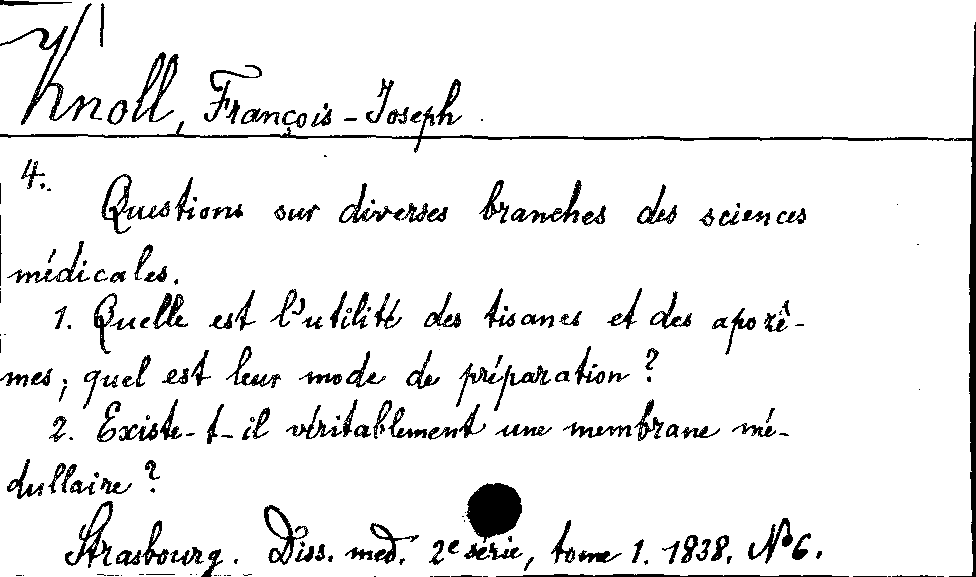 Knoll, François-Joseph
4.
Questions sur diverses branches des sciences
médicales.
1. Quelle est l'utilité des tisanes et des apozê-
mes; quel est leur mode de préparation?
2. Existe-t-il véritablement une membrane mé-
dullaire?
Strasbourg. Diss. med. 2e série, tome 1. 1838. No 6.